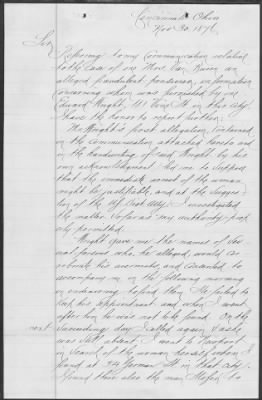 Cincinnati Ohio
Nov 30 1876
Sir
Referring to my communication relative
to the case of one Mrs. Van Buren an
alleged fraudulent pensioner, information
concerning whom was furnished by
Edward Wright, 111 Vine St in this City
I have the honor to report further.
Mr Wright's first allegation, contained
in the communication attached hereto and
in the handwriting of said Wright by his
own acknowledgment led me to suppose
that the immediate arrest of the woman
might be justifiable, and at the sugges-
tion of the U.S. Dist Atty I investigated
the matter so far as my authority prop-
erly permitted.
Wright gave me the names of sev-
eral persons who, he alleged would cor-
roborate his averments, and consented to
accompany me on the following morning
in endeavoring to find them. He failed to
keep his appointment and when I went
after him he was not to be found. On the
next succeeding day I called again & as he
was still absent I went to Newport
in search of the woman herself whom I
found at 94 German St in that city
Living there also the man to